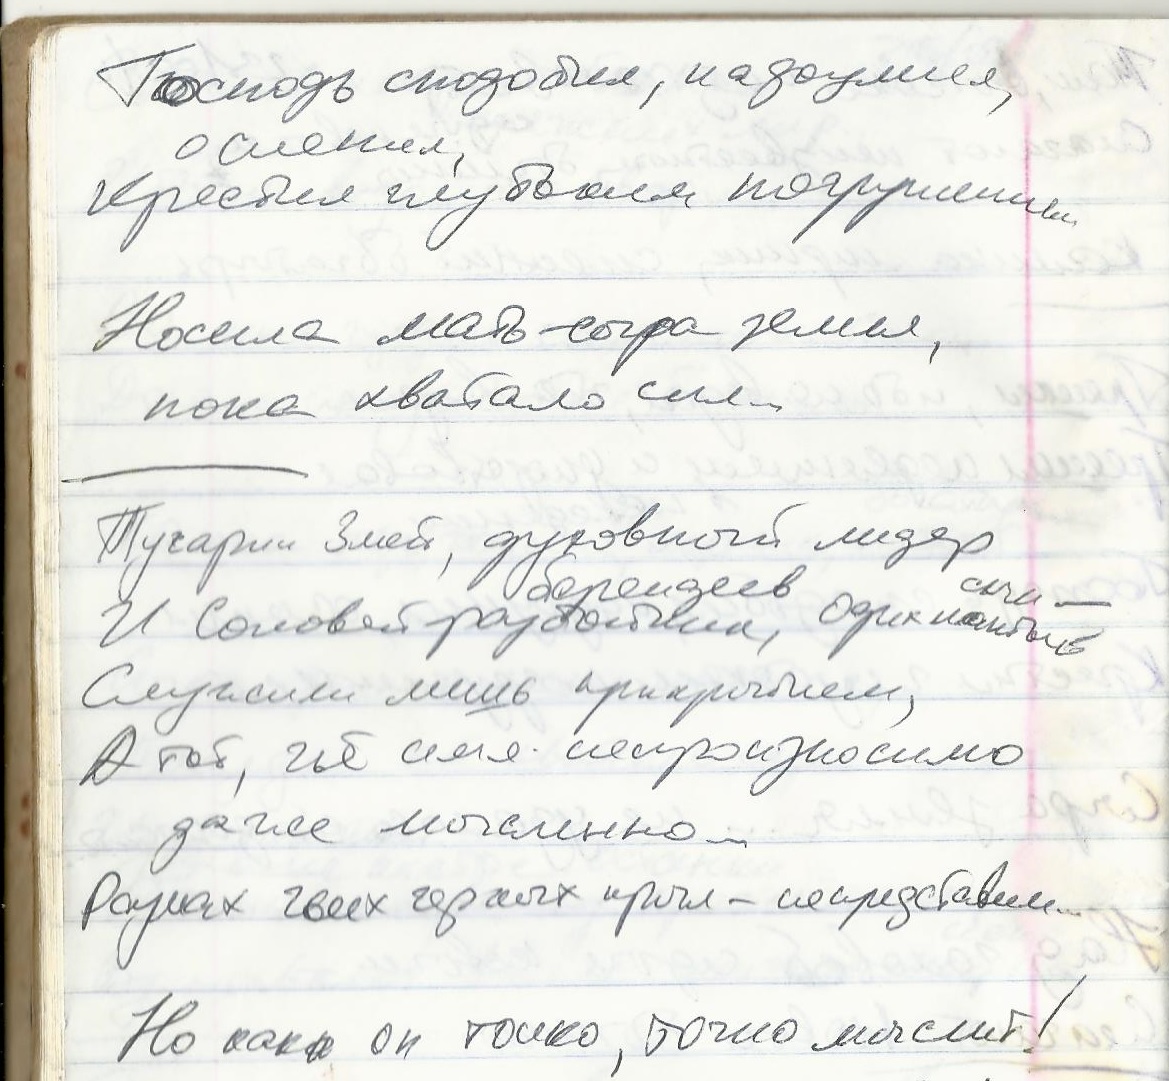 Господь сподобил, надоумил,
осиенил,
Крестил глубоким погружением
Носила мать-сыра земля,
пока хватало сил...
Тугарин Змей, духовный лидер
берендеев
И Соловей разбойник,
Служили лишь прикрытием,
А тот, чьё имя непроизносимо
даже мысленно...
Размах чьих черных крыл – непредставим...
Но как он тонко, точно мыслит!